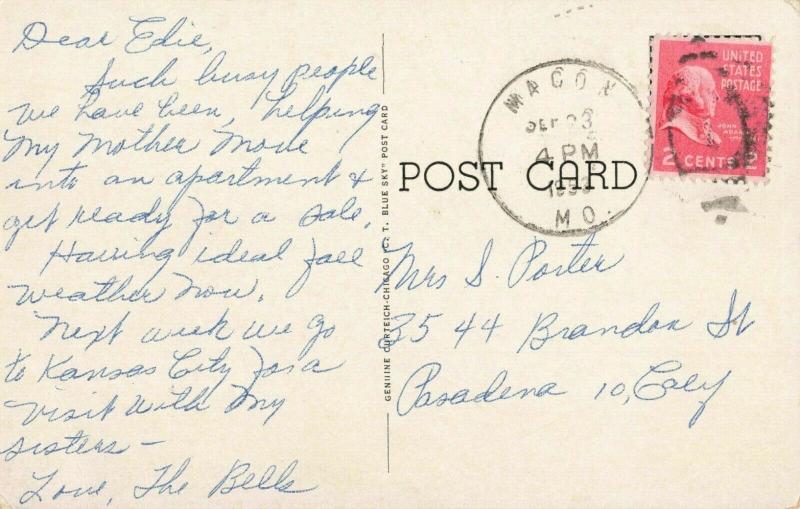 Dear Edie,
Such busy people
we have been, helping
My Mother Move
into an apartment &
get ready for a sale.
Having ideal fall
weather now.
Next week we go
to Kansas City for a
visit with My
sisters –
Love, The Bells
GENUINE CURTEICH-CHICAGO "C. T. BLUE SKY" POST CARD
POST CARD
MACON
SEP 23
4 PM
MO.
UNITED
STATES
POSTAGE
JOHN
ADAMS
2 CENTS 2
Mrs S. Porter
3544 Brandon St
Pasadena 10, Caly